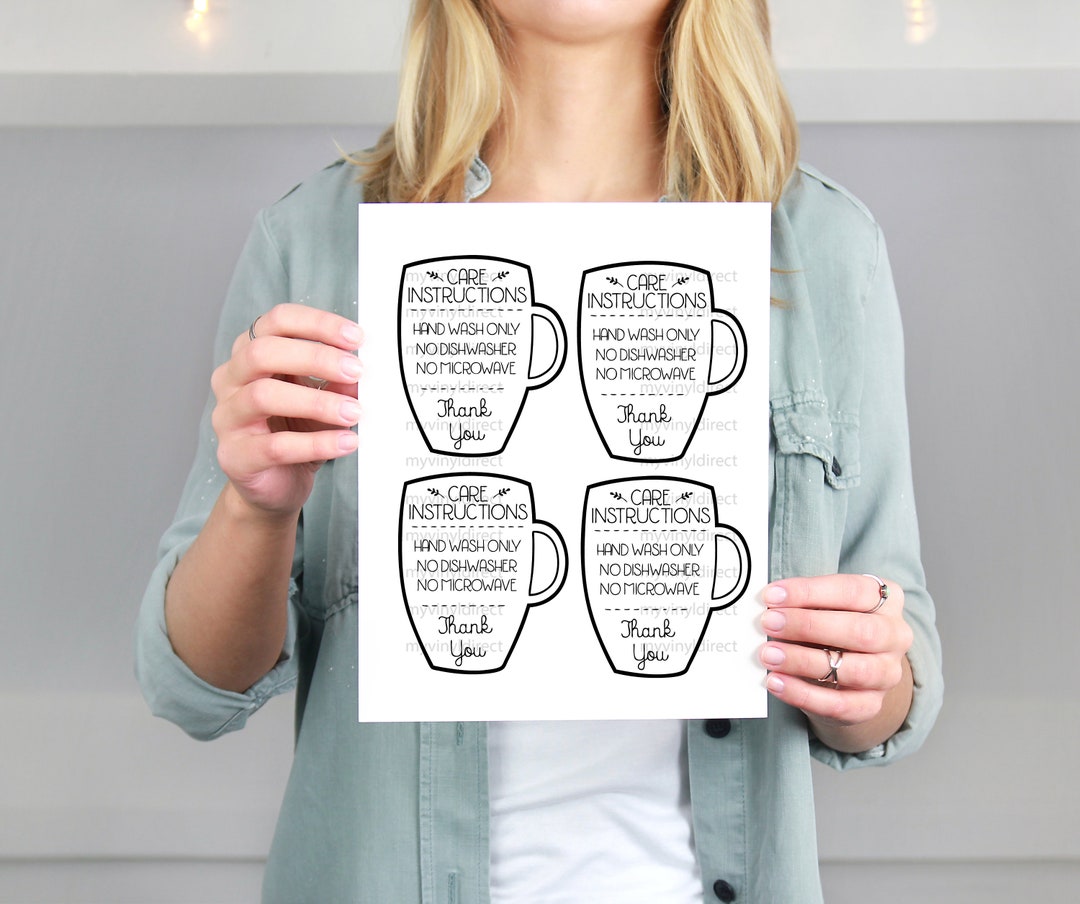 CARE
INSTRUCTIONS
HAND WASH ONLY
NO DISHWASHER
NO MICROWAVE
Thank
You
CARE
INSTRUCTIONS
HAND WASH ONLY
NO DISHWASHER
NO MICROWAVE
Thank
You
CARE
INSTRUCTIONS
HAND WASH ONLY
NO DISHWASHER
NO MICROWAVE
Thank
You
CARE
INSTRUCTIONS
HAND WASH ONLY
NO DISHWASHER
NO MICROWAVE
Thank
You
myvinyldirect